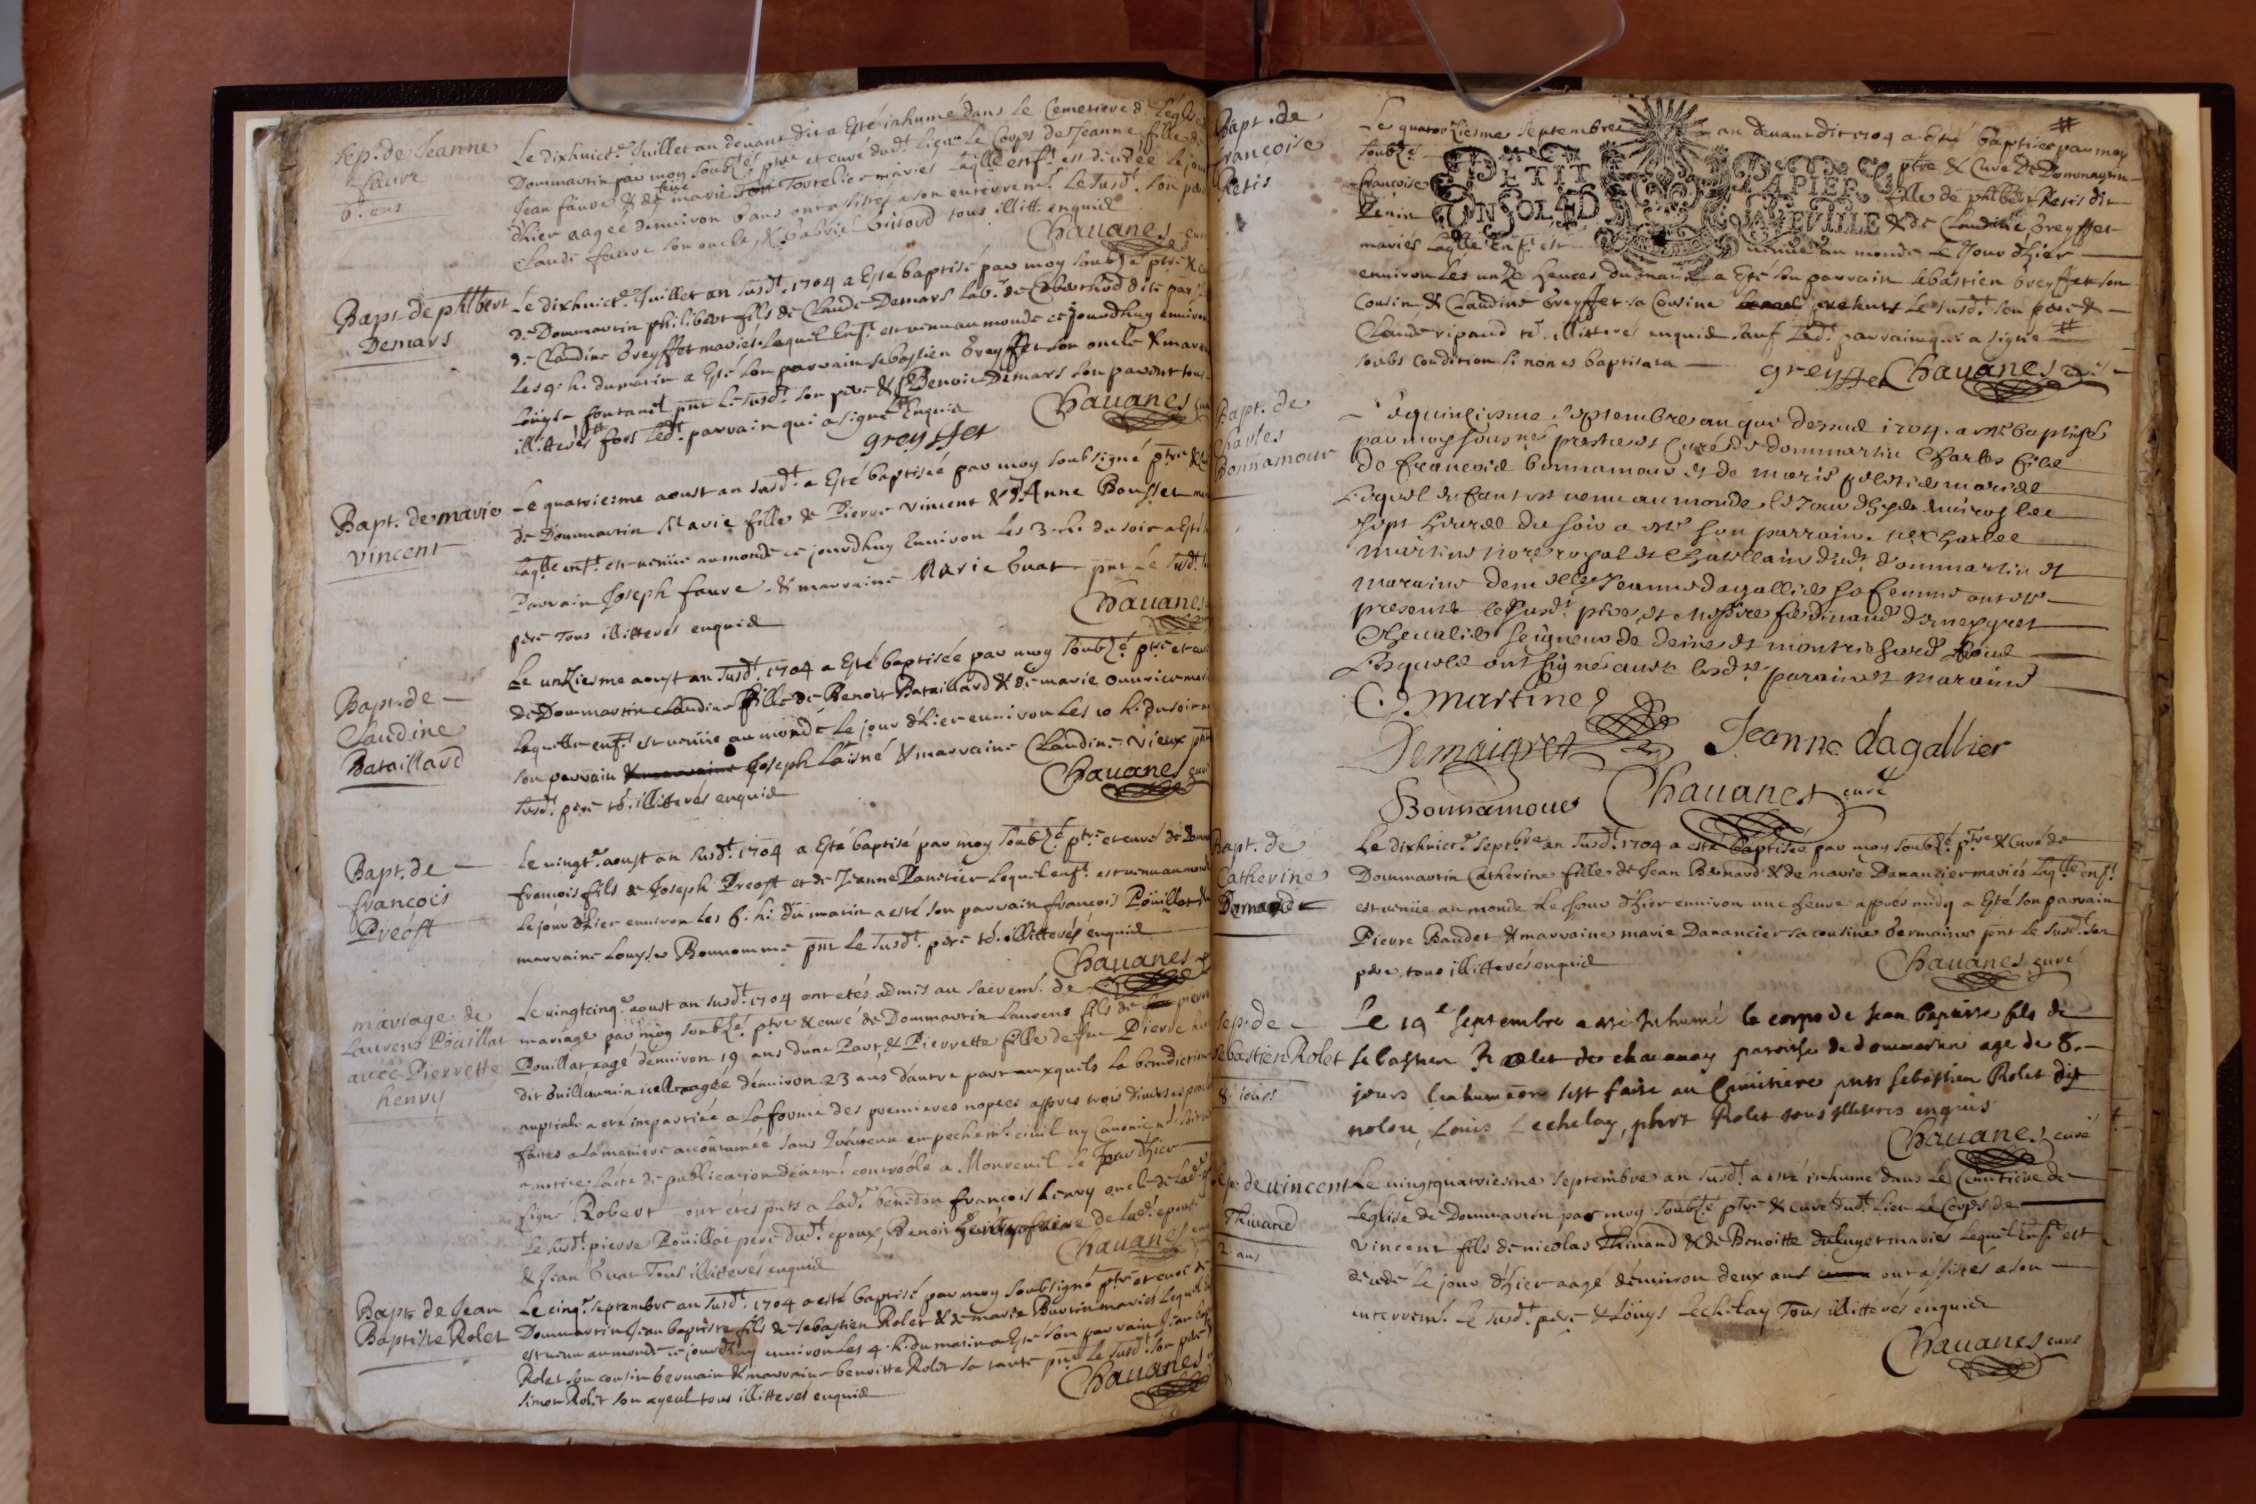 sep. de Jeanne
faure
6. ans
Le dixhuict.e Juillet an devant dit a Esté inhumé dans le Cemetiere de Légl
Dommartin par moy soubzé ptre et curé dud.t lieu le Corps de Jeanne fille de
Jean faure & de feüe marie Tortelier mariés laq.lle enf.t est décédée le jour
d'hier aagée denuiron 6 ans ont assistés a son enterrem.t le susd.t son pere
Claude faure son oncle, & Gabriel Guitord tous illitt. enquis
Chauanes
Bapt. de phlbert
Demars
Le dixhuict.e Juillet an susd.t 1704 a Esté baptisé par moy soubzé ptre &
de Dommartin philibert fils de Claude Demars lab.r de
de Claudine Greyffet mariés. Lequel Enf.t est venu au monde ce jourdhuy enuiron
les 9. h. du matin a Esté son parrain sebastien Greyffet son oncle & mar
Loüyse fontanel pnt le susd.t son pere & Benoit Demars son parent tous
illitterés fors led.t parrain qui a signé Enquis
greyffet
Chauanes
Bapt. de marie
vincent
Le quatriesme aoust an susd.t a Esté baptisée par moy soubsigné ptre &
de Dommartin Marie fille de Pierre vincent & d'Anne Bousset
laqlle enf.t est venüe au monde ce jourdhuy Enuiron les 3. h. du soir a Esté
Parrain Joseph faure & marraine Marie Guat pnt le susd.t
pere Tous illitterés enquis
Chauanes
Bapt. de
Claudine
Bataillard
Le unziesme aoust an susd.t 1704 a Esté baptisée par moy soubzé ptre et curé
de Dommartin Claudine fille de Benoit Bataillard & de marie ouurier
Laquelle enf.t est venüe au monde le jour d'hier enuiron les 10 h. du soir
son parrain Joseph Laisné & marraine Claudine vieux pnt
susd.t pere ts. illitterés enquis
Chauanes curé
Bapt. de
françois
Préost
Le vingt.e aoust an susd.t 1704 a Esté baptisé par moy soubzé ptre et curé de Dom
françois fils de Joseph Preost et de Jeanne Pancteur Lequel enf.t est venu au monde
Le jour d'hier enuiron les 6. h. du matin a esté son parrain françois Poüillat
marraine Louyse Bonnomme pnt le susd.t pere ts. illitterés enquis
Chauanes
mariage de
Laurens Poüillat
auec Pierrette
henry
Le vingtcinq.e aoust an susd.t 1704 ont etés admis au sacrem.t de
mariage par moy soubzé ptre & curé de Dommartin Laurens fils de pierre
Pouillat aagé denuiron 19 ans d'une Part, & Pierrette fille de feu Pierre
dit Guillaumin icelle agée denuiron 23 ans d'autre part auxquels la benediction
nuptiale a eté impartiée a la forme des premieres nopces appres trois diuerses
faites a la maniere accoutumée sans qu'aucun empechem.t ciuil ny Canonic
notice. Lacte de publication deuem.t controolé a Monreuil le Jour d'hier
signé Robert ont étés pnts a lad.e benedon françois henry oncle de lad.e
Le susd.t pierre Poüillat pere dud.t epoux, Benoit henry frere de lad.e epouse
& Jean Guat Tous illitterés enquis
Chauanes
Bapt. de Jean
Baptiste Rolet
Le cinq.e septembre an susd.t 1704 a esté baptisé par moy soubsigné ptre et curé de
Dommartin Jean baptiste fils de sebastien Rolet & de marie Burtin mariés Lequel
est venu au monde ce jourdhuy enuiron les 4. h. du matin a Esté son parrain Jean
Rolet son cousin Germain & marraine benoitte Rolet sa tante pnt le susd.t son pere
simon Rolet son ayeul tous illitterés enquis
Chauanes
Bapt. de
françoise
Retis
Le quatorziesme septembre an deuant dit 1704 a Eté baptisée par moy
soubzé ptre & Curé de Dommartin
françoise fille de phlbert Retis dit
& de Claudine Greyffet
PETIT PAPIER
CONSOLED
mariés Laqlle Enf.t est venüe au monde le Jour d'hier
enuiron les unze heures du matin a Esté son parrain sebastien Greyffet son
cousin & Claudine Greyffet sa Cousine presents le susd.t son pere &
Claude ripaud ts. illitterés enquis sauf led.t parrain qui a signé
soubs condition si non es baptisata
greyffet
Chauanes
Bapt. de
Charles
Bonnamour
Lequinziesme septembre an que dessus 1704. a esté baptisé
par moy soussigné prestre et Curé de dommartin Charles filz
de francois bonnamour et de marie
Lequel enfant est venu au monde le Jour d'hyer enuiron les
sept heures du soir a esté son parrain Charles
Martine nore royal et Chatellain dud.t dommartin et
maraine demoiselle Jeanne dagallier sa femme
presents le susd.t pere, et Messire ferdinand demeygret
Cheualier seigneur de
Lesquels ont signé auec lesd.ts parain et maraine
C. martine
Demaigret
Jeanne dagallier
Bonnamour
Chauanes curé
Bapt. de
Catherine
Bernard
Le dixhuict.e Septbre an susd.t 1704 a esté baptisée par moy soubzé ptre & Curé de
Dommartin Catherine fille de Jean Bernard & de marie Danancier mariés Laqlle enf.t
est venüe au monde le Jour d'hier enuiron une heure appres midy a Esté son parrain
Pierre Baudet & marraine marie Danancier sa cousine Germaine pnt le susd.t son
pere, tous illitterés enquis
Chauanes curé
sep. de
sebastien Rolet
8. iours
Le 19e septembre a esté Inhumé le corps de Jean baptiste fils de
sebastien Rolet de chacunay paroisse de dommartin agé de 8.
jours l'inhumaon sest faite au Cimitiere pnts sebastien Rolet dit
nolou, Louis Lechelay, phrt Rolet tous illiteres enquis
Chauanes curé
sep. de vincent
Thiuand
2 ans
Le vingtquatriesme septembre an susd.t a esté inhumé dans le Cemitiere de
Leglise de Dommartin par moy soubzé ptre & curé dud.t Lieu Le Corps de
vincent fils de nicolas Thiuand & de Benoitte duluyet mariés Lequel Enf.t est
décédé le jour d'hier aagé denuiron deux ans ont assistés a son
interrem.t le susd.t pere & Loüys Lechelay Tous illitterés enquis
Chauanes curé